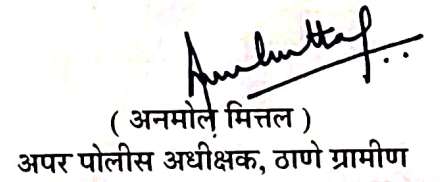 ( अनमोल मित्तल )
अपर पोलीस अधीक्षक, ठाणे ग्रामीण